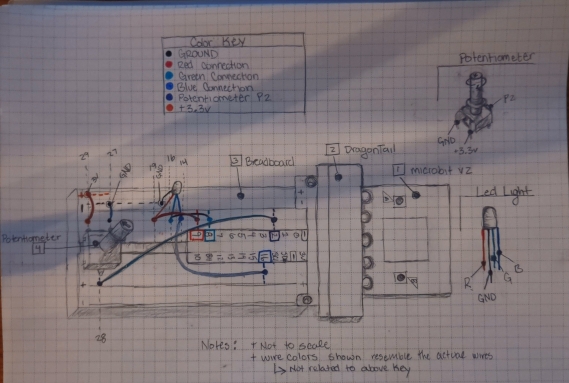 Color Key
GROUND
Red Connection
Green Connection
Blue Connection
Potentiometer P2
+3.3v
Potentiometer
P2
GND
+3.3v
29
27
GND
19
GND
16
14
3 Breadboard
2 DragonTail
1 microbit V2
Led Light
R
GND
G
B
Potentiometer
4
28
Notes: + Not to scale
+ wire colors shown resemble the actual wires
↳ Not related to above Key